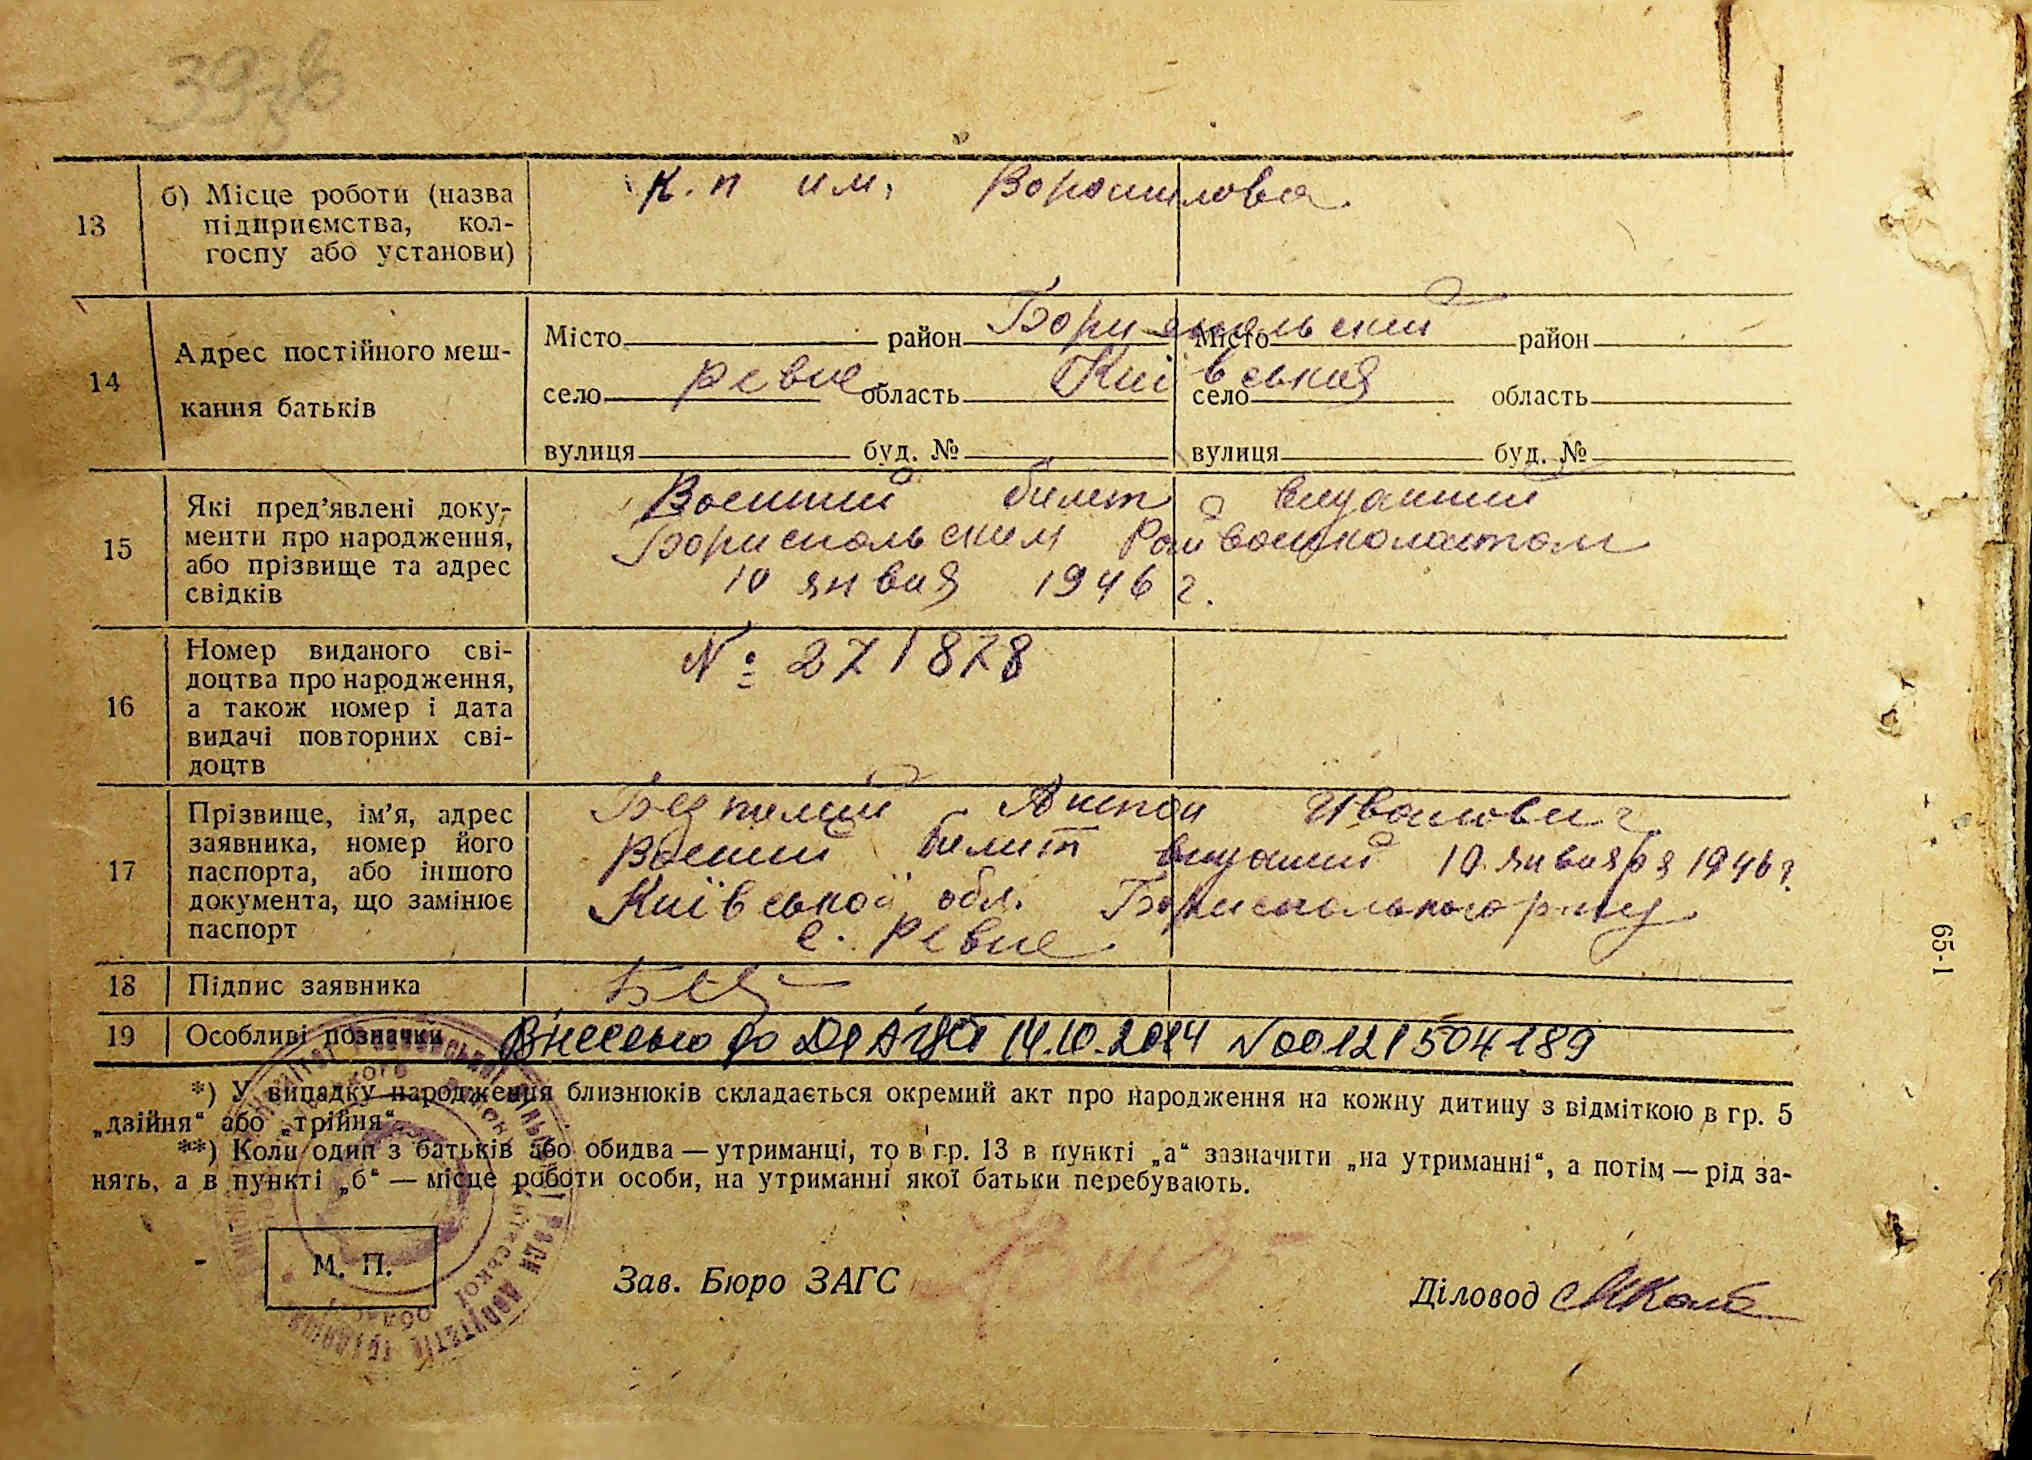 13 б) Місце роботи (назва підприємства, колгоспу або установи)
К.п им. Ворошилова
14 Адрес постійного мешкання батьків
Місто район Бориспольский Місто район
село Ревне область Київська село область
вулиця буд. № вулиця буд. №
15 Які пред'явлені документи про народження, або прізвище та адрес свідків
Военний билет выданний
Бориспольским Райвоенкоматом
10 января 1946 г.
16 Номер виданого свідоцтва про народження, а також номер і дата видачі повторних свідоцтв
№ 271878
17 Прізвище, ім'я, адрес заявника, номер його паспорта, або іншого документа, що замінює паспорт
Антон Иванович
Военний билет выданий 10 января 1946 г.
Київської обл. Бориспольского р-ну
с. Ревне
18 Підпис заявника
19 Особливі позначки Внесено до ДРАЦС 14.10.2014 N00121504189
*) У випадку народження близнюків складається окремий акт про народження на кожну дитину з відміткою в гр. 5
„двійня“ або „трійня“.
**) Коли один з батьків або обидва — утриманці, то в гр. 13 в пункті „а“ зазначити „на утриманні“, а потім — рід за-
нять, а в пункті „б“ — місце роботи особи, на утриманні якої батьки перебувають.
М. П.
Зав. Бюро ЗАГС
Діловод
65-1